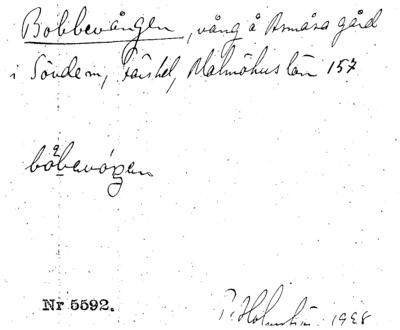 Bobbevången, vång å Asmåsa gård
i Sövdem, Färshd, Malmöhus län 157
båbavóŋen
Nr 5592. P. Holmström 1928